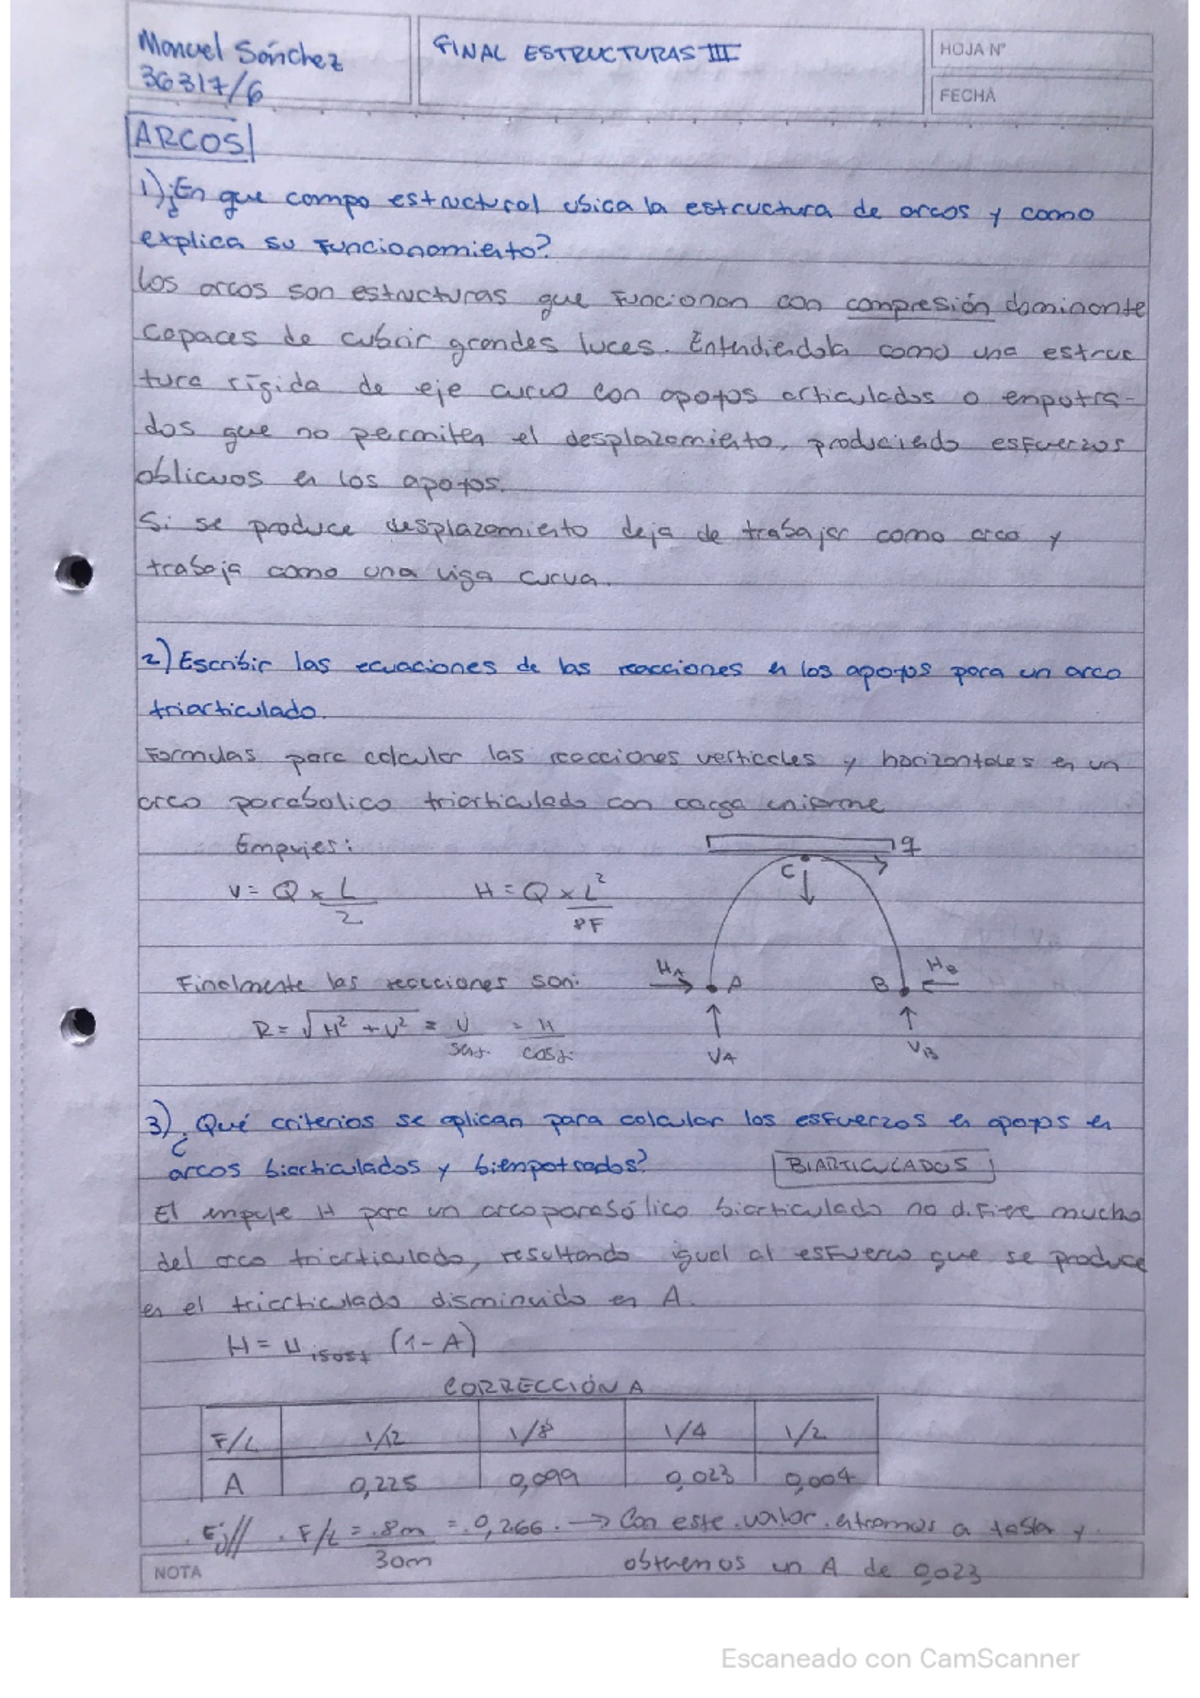 Manuel Sánchez
36317/6
FINAL ESTRUCTURAS III
HOJA Nº
FECHA
ARCOS
1) ¿En que campo estructural ubica la estructura de arcos y como
explica su funcionamiento?
Los arcos son estructuras que funcionan con compresión dominante
capaces de cubrir grandes luces. Entendiendola como una estruc
tura rígida de eje curvo con apoyos articulados o empotra-
dos que no permiten el desplazamiento, produciendo esfuerzos
oblicuos en los apoyos.
Si se produce desplazamiento deja de trabajar como arco y
trabaja como una viga curva.
2) Escribir las ecuaciones de las reacciones en los apoyos para un arco
triarticulado.
Formulas para calcular las reacciones verticales y horizontales en un
arco parabolico triarticulado con carga uniforme
Empujes:
V = Q x L/2 H = Q x L²/8F
q
C
HA A B HB
VA VB
Finalmente las reacciones son:
R = √H² + V² = V/sen = H/cos
3) ¿Qué criterios se aplican para calcular los esfuerzos en apoyos en
arcos biarticulados y biempotrados?
BIARTICULADOS
El empuje H para un arco parabólico biarticulado no difiere mucho
del arco triarticulado, resultando igual al esfuerzo que se produce
en el triarticulado disminuido en A.
H = H isost (1 - A)
CORRECCIÓN A
F/L 1/12 1/8 1/4 1/2
A 0,225 0,099 0,023 0,004
Ej// F/L = 8m/30m = 0,266 → Con este valor entramos a tabla y
obtenemos un A de 0,023
NOTA
Escaneado con CamScanner